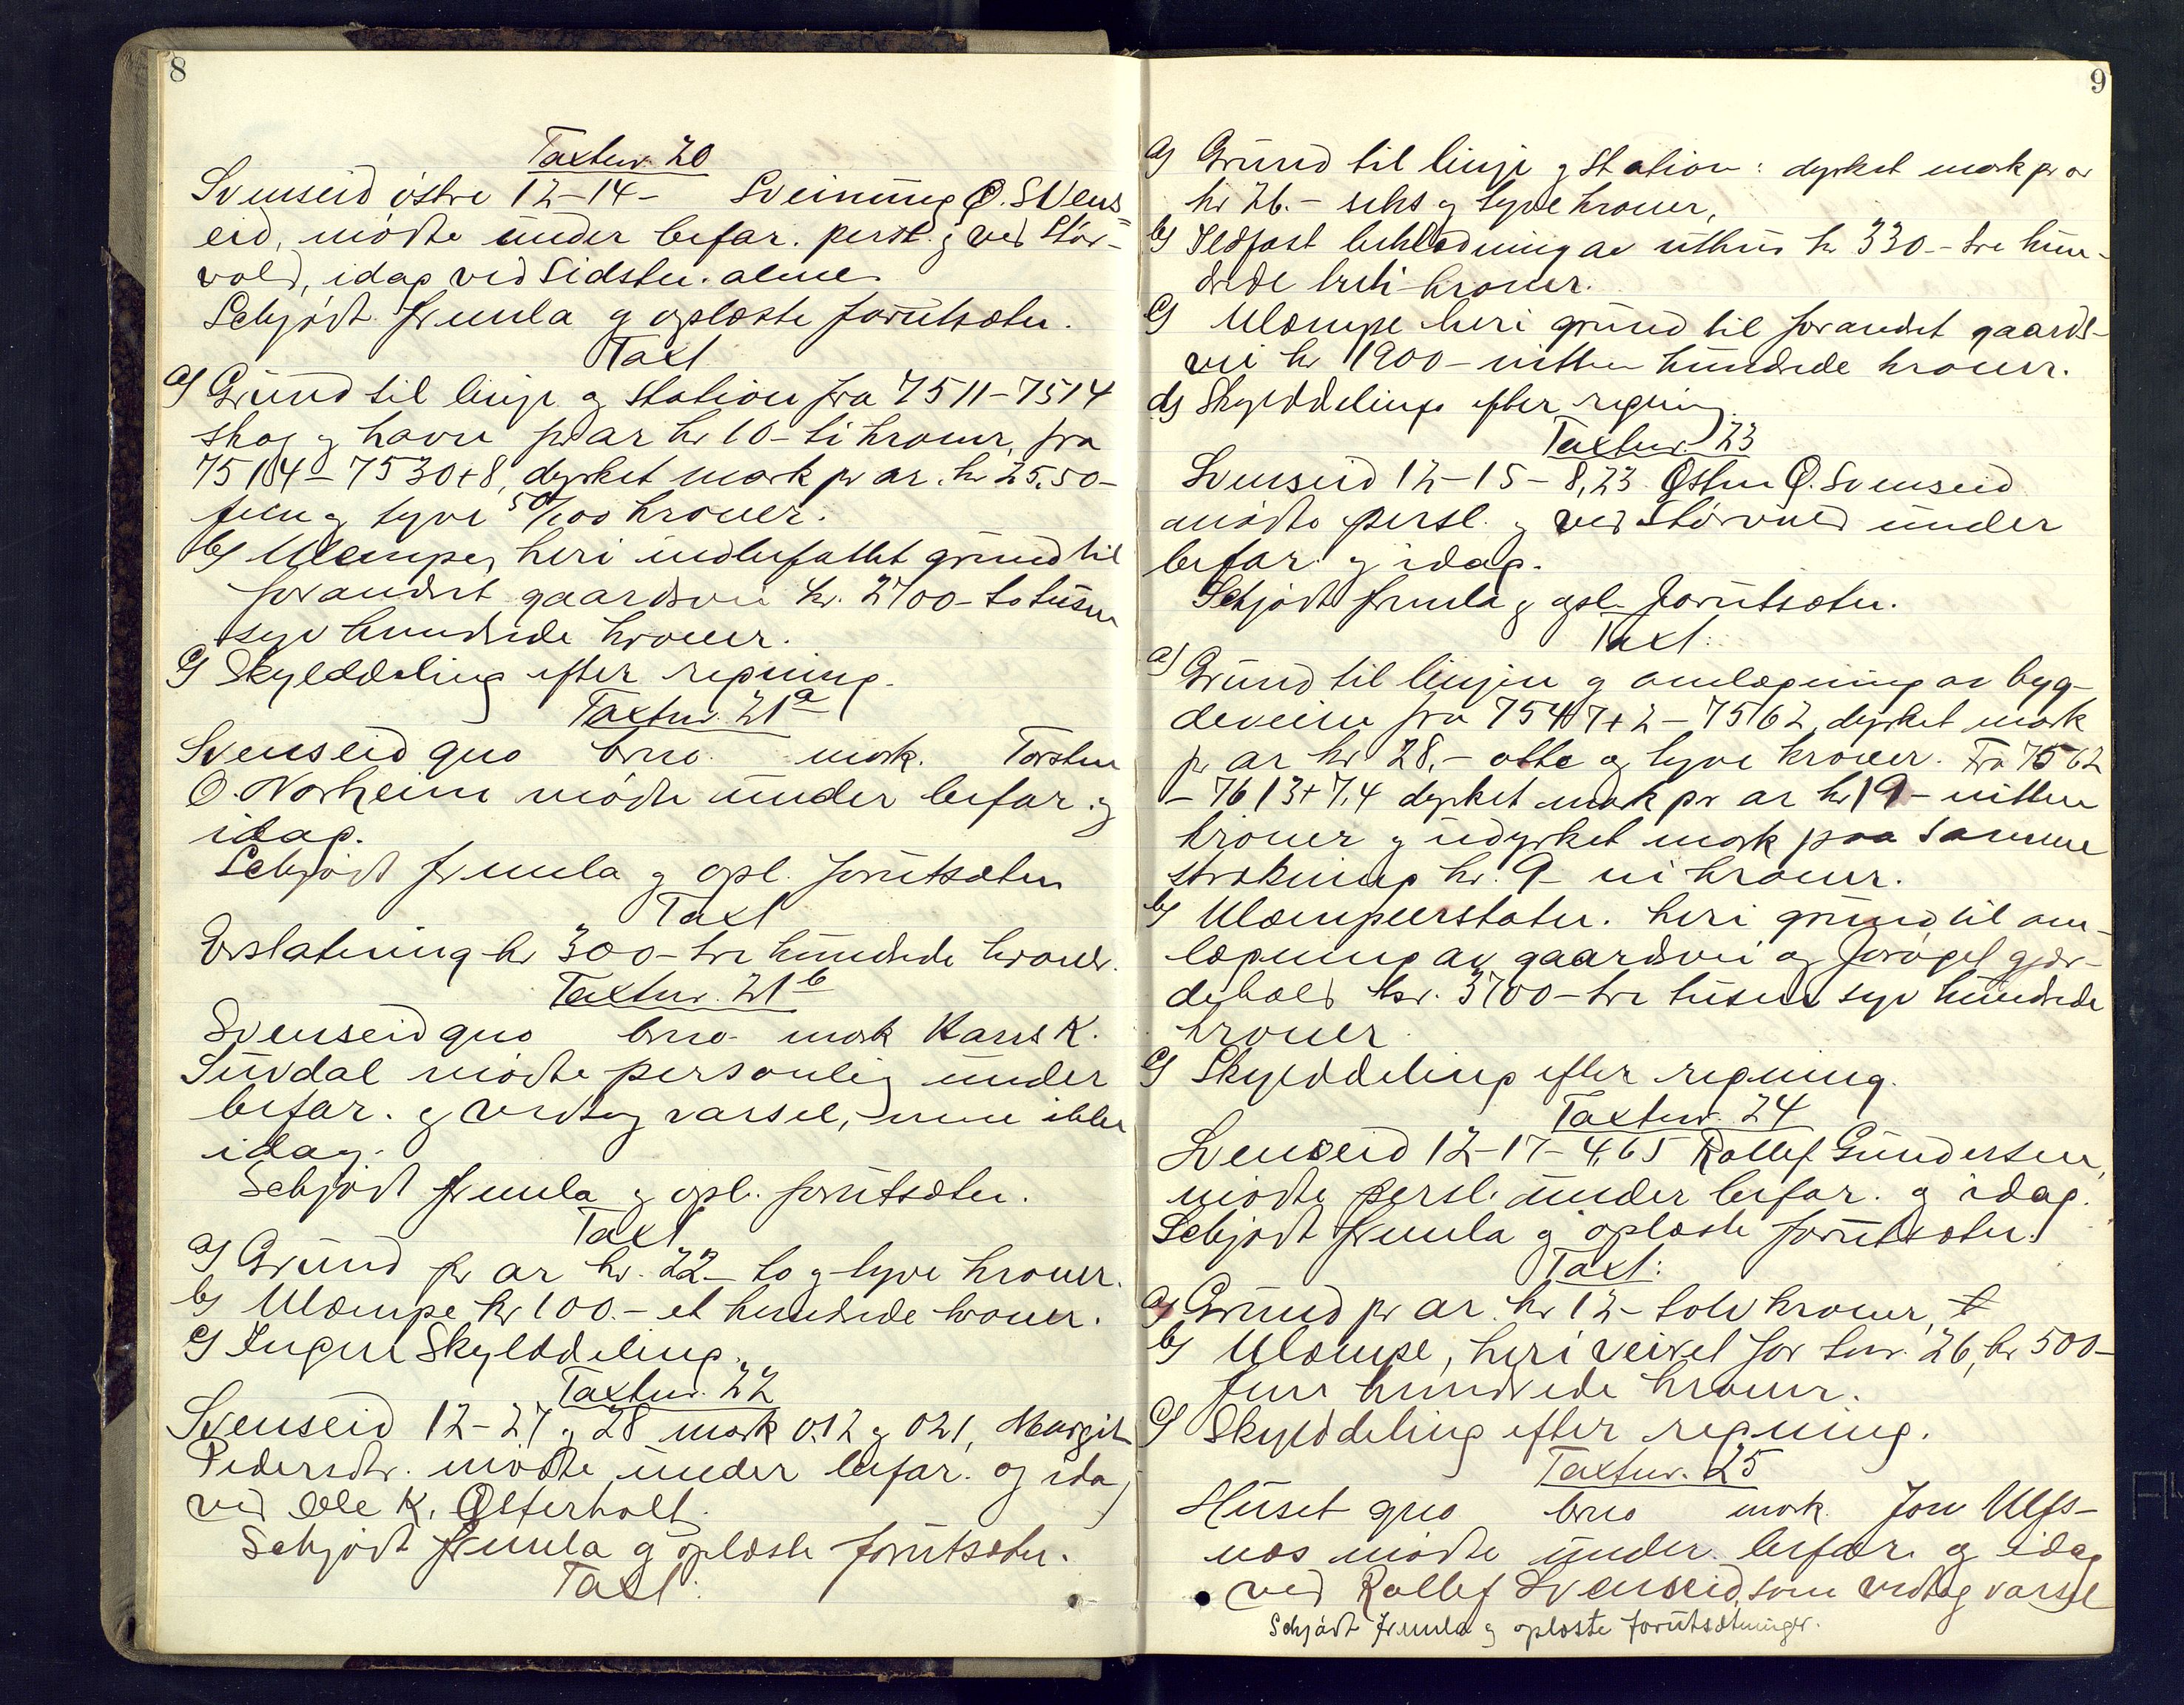 8
Taxtnr. 20
Svenseid østre 12-14- Sveinung O. Svens
eid, møtte under befar. persl. g ved Stør-
vold, idag ved sidstn. alene
Schjødt fremla g oplæste forutsætn.
Taxt
a) Grund til linje og station fra 7511-7514
skog g havn pr ar kr 10- ti kroner, fra
7514- 7530+8, dyrket mark pr ar. kr 25.50-
fem g tyve 50/100 kroner.
b) Ulempe, heri indbefattet grund til
forandret gaardsvei kr. 2700- to tusen
syv hundrede kroner.
c) Skylddeling efter regning.
Taxtnr. 21a
Svenseid gno brno. mark. Torsten
O. Norheim møtte under befar. g
idag.
Schjødt fremla g opl. forutsætn
Taxt
Erstatning kr 300- tre hundrede kroner.
Taxtnr. 21b
Svenseid gno brno mark Hans K.
Suvdal møtte personlig under
befar. g vedtog varsel, men ikke
idag.
Schjødt fremla g opl. forutsætn.
Taxt
a) Grund pr ar kr. 22- to g tyve kroner.
b) Ulæmpe kr 100.- et hundrede kroner.
c) Ingen Skylddeling.
Taxtnr. 22
Svenseid 12-27 g 28 mark 0.12 g 021, Margit
Pedersdtr. møtte under befar. og idag
ved Ole K. Østerholt.
Schjødt fremla g oplæste forutsætn.
Taxt.
9
a) Grund til linje g station: dyrket mark pr ar
kr 26.- seks g tyve kroner,
b) Ildfast beklædning av uthus kr 330- tre hun-
drede treti kroner.
c) Ulæmpe heri grund til forandret gaards-
vei kr 1900- nitten hundrede kroner.
d) Skylddeling efter regning.
Taxtnr. 23
Svenseid 12-15- 8,23 Østen O. Svenseid
møtte persl. g ved Størvold under
befar. g idag.
Schjødt fremla g opl. forutsætn.
Taxt:
a) Grund til linjen g omlægning av byg-
deveien fra 7547+2- 7562, dyrket mark
pr ar kr 28,- otte og tyve kroner. Fra 7562
- 7613+7,4 dyrket mark pr ar kr 19- nitten
kroner g udyrket mark paa samme
strækning kr. 9- ni kroner.
b) Ulæmpeerstatn. heri grund til om-
lægning av gaardsvei og forøget gjær-
dehold kr. 3700- tre tusen syv hundrede
kroner.
c) Skylddeling efter regning.
Taxtnr. 24
Svenseid 12-17- 4,65 Rollef Gundersen,
møtte persl. under befar. g idag.
Schjødt fremla g oplæste forutsætn.
Taxt:
a) Grund pr ar. kr 12- tolv kroner,
b) Ulæmpe, heri veiret for tnr. 26, kr 500-
fem hundrede kroner.
c) Skylddeling efter regning.
Taxtnr. 25
Huset gno brno mark. Jon Ulfs-
nes møtte under befar. g idag
ved Rollef Svenseid, som vedtog varsel
Schjødt fremla g oplæste forutsætninger.